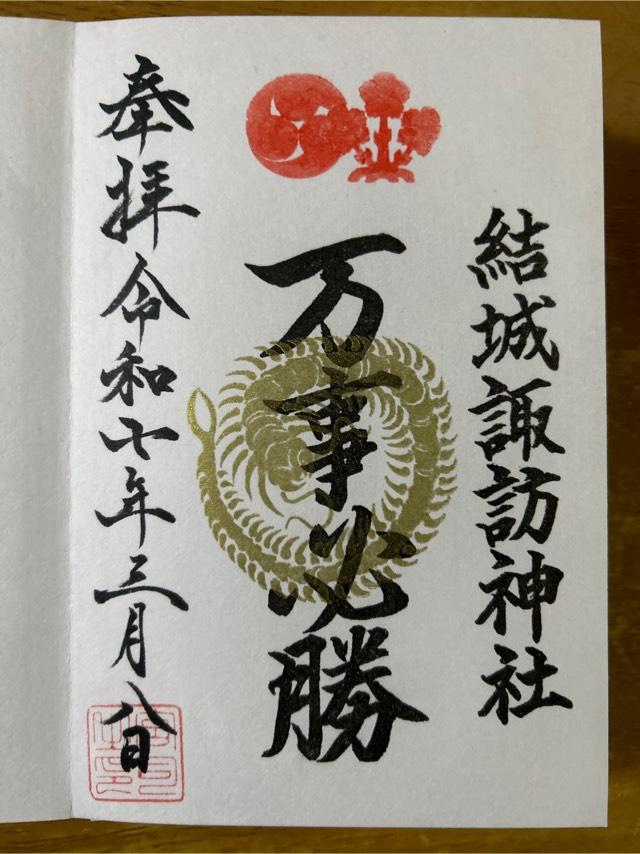 結城諏訪神社
万事必勝
奉拝令和七年三月八日